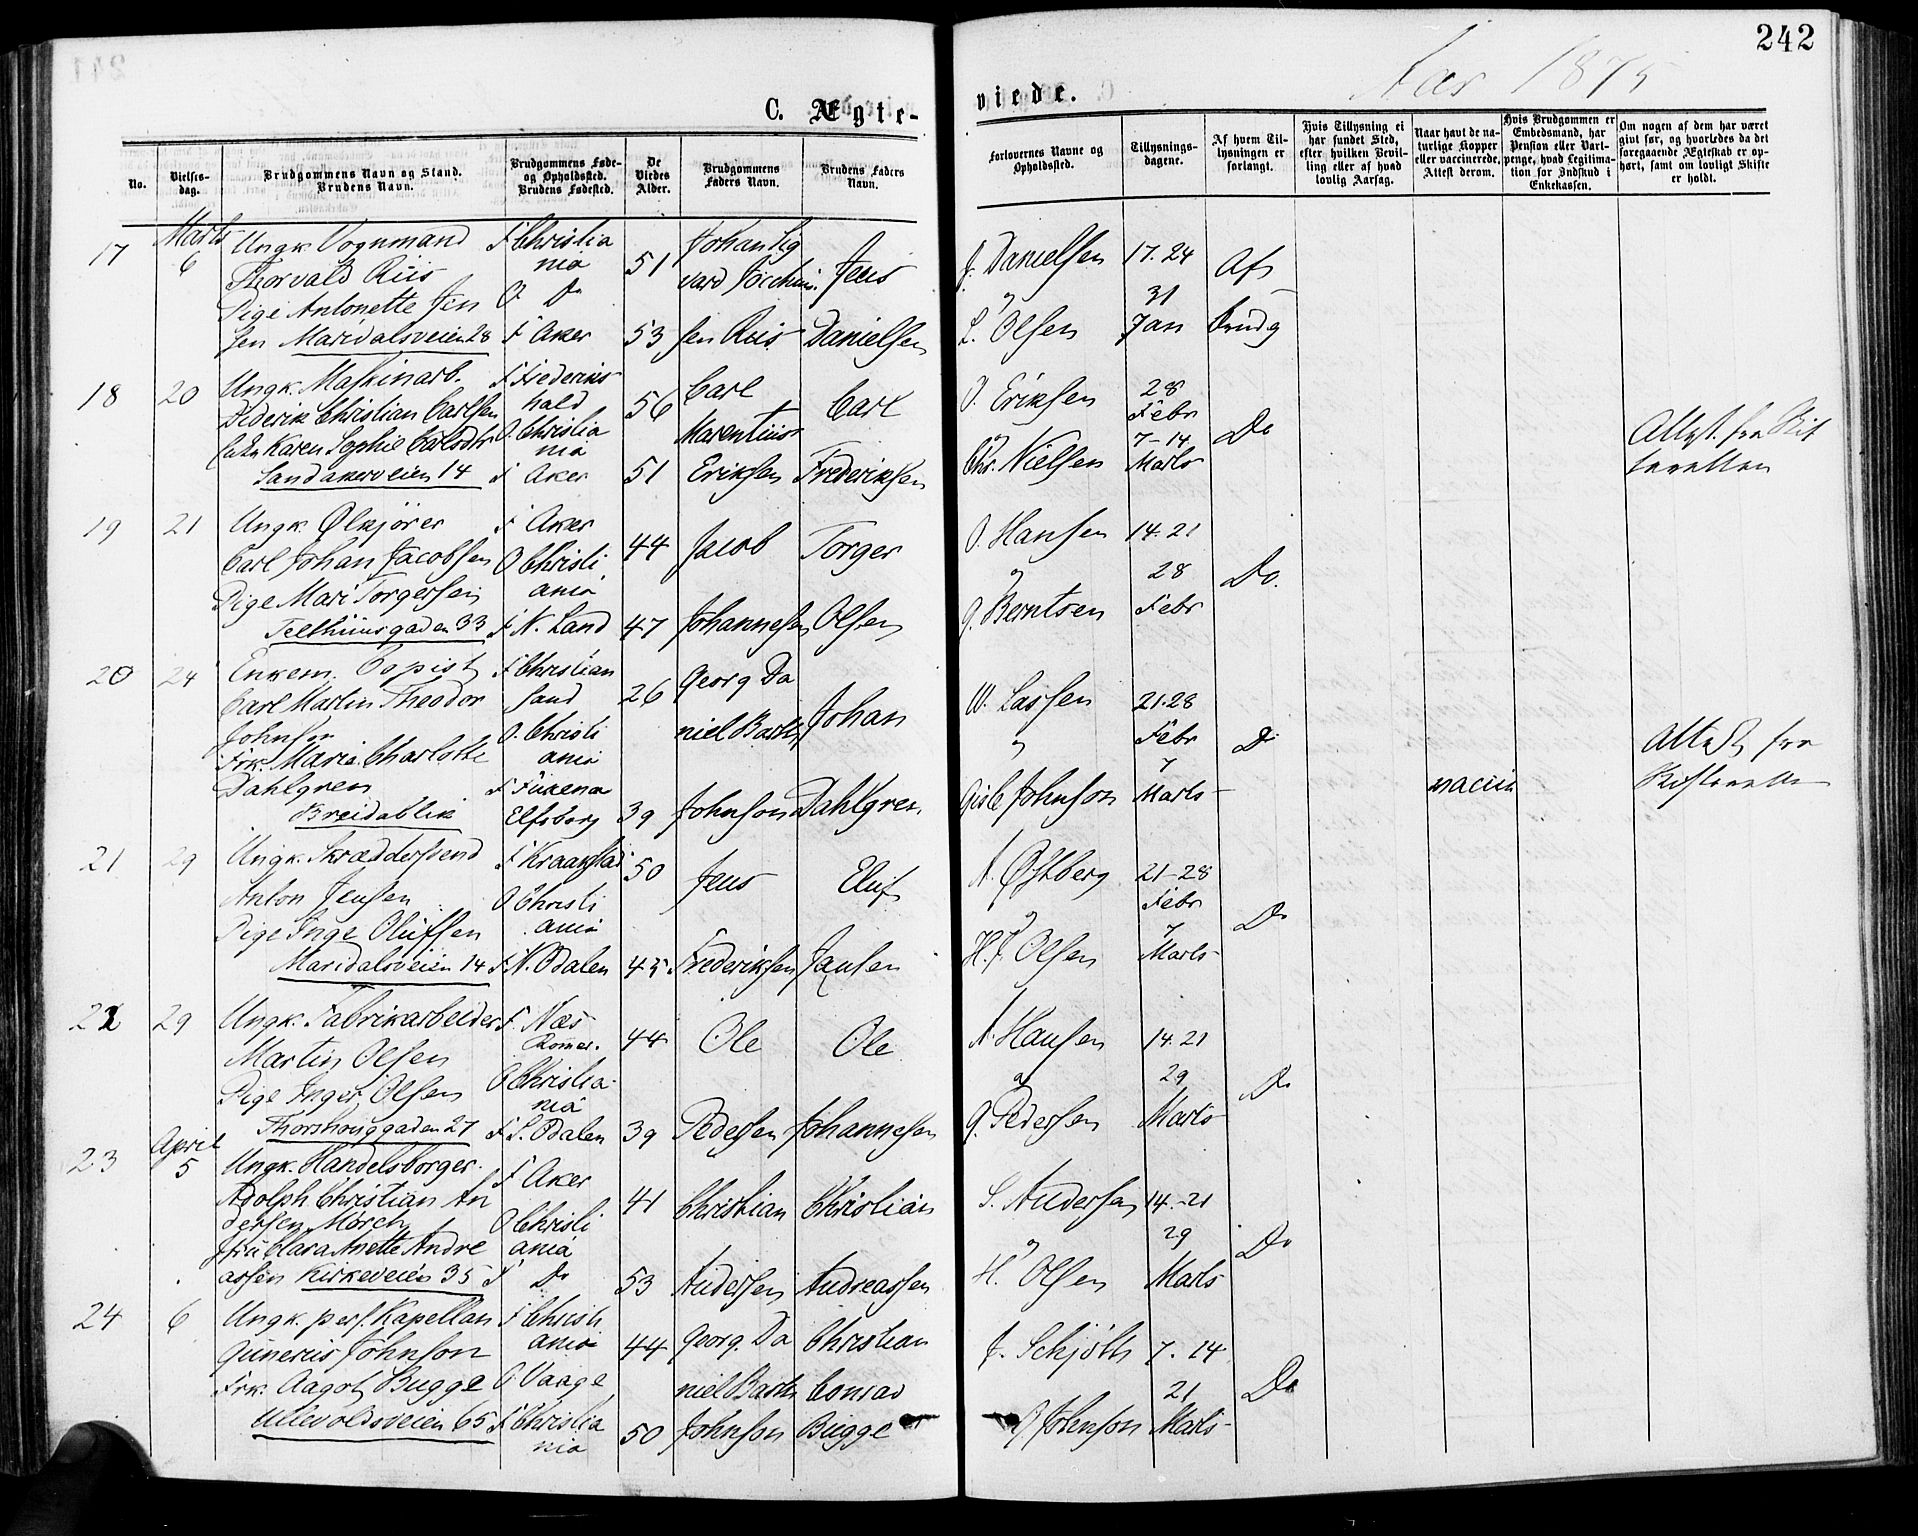 242
Aar 1875
C. Ægte-
viede.
No.
Vielses-
dag.
Brudgommens Navn og Stand.
Brudens Navn.
Brudgommens Føde-
og Opholdssted.
Brudens Fødested.
De
Viedes
Alder.
Brudgommens
Faders Navn.
Brudens Faders
Navn.
Forlovernes Navne og
Opholdssted.
Tillysnings-
dagene.
Af hvem Til-
lysningen er
forlangt.
Hvis Tillysning ei
har fundet Sted,
efter hvilken Bevil-
ling eller af hvad
lovlig Aarsag.
Naar havt de na-
turlige Kopper
eller vaccinerede.
Attest derom.
Hvis Brudgommen er
Embedsmand, har
Pension eller Vart-
penge, hvad Legitima-
tion for Indskud i
Enkekassen.
Om nogen af dem har været
givt før, og hvorledes da det
foregaaende Ægteskab er op-
hørt, samt om lovligt Skifte
er holdt.
17 Marts 6
Ungk. Vognmand
Thorvald Riis
Pige Antonette Jen
sen Maridalsveien 28
F Christia
nia
O. Do
F Aker
51
53
Johan
vard Jocchum
sen Riis
Jens
Danielsen
J. Danielsen
L. Olsen
17. 24
31
Jan
Af
Brudg
18 20
Ungk. Maskinarb.
Diderik Christian Carlsen
Karen Sophie Carlsdtr
Sandakerveien 14
F Frederiks
hald
O. Christia
nia
F Aker
56
51
Carl
Marentius
Eriksen
Carl
Frederiksen
O. Eriksen
Chr. Nielsen
28
Febr
7-14
Marts
Do
Attest. fra Skif
teretten
19 21
Ungk. Ølkjører
Carl Johan Jacobsen
Pige Mari Torgersen
Telthusgaden 33
F Aker
O Christi
ania
F N. Land
44
47
Jacob
Johannesen
Torger
Olsen
O. Hansen
G. Berntsen
14. 21
28
Febr
Do.
20 24
Enkem. Copist
Carl Martin Theodor
Johnson
Frk. Marie Charlotte
Dahlgren
Breidablik
F Christian
sand
O. Christi
ania
F Fuxerna
Elfsborg
26
39
Georg Da
niel Barth
Johnson
Johan
Dahlgren
W. Lassen
Gisle Johnson
21.28
Febr
7
Marts
Do
vaccin
Attest fra
Skifteretten
21 29
Ungk. Skræddersvend
Anton Jensen
Pige Inge Oluffsen
Maridalsveien 14
F Kraakstad
O Christi
ania
F N. Odalen
50
45
Jens
Frederiksen
Eluf
Jansen
A. Østberg
H. J. Olsen
21-28
Febr
7
Marts
Do
22 29
Ungk. Fabrikarbeider
Martin Olsen
Pige Inger Olsen
Thorshouggaden 27
F. Næs
Romer.
O Christia
nia
F S. Odalen
44
39
Ole
Pedersen
Ole
Johannesen
A. Hansen
G. Pedersen
14. 21
29
Marts
Do
23 April 5
Ungk. Handelsborger
Adolph Christian An
dersen Mørch
Jfru Clara Anette Andre
assen Kirkeveien 35
F Aker
O Christi
ania
F Do
41
53
Christian
Andersen
Christian
Andreassen
S. Andersen
H. Olsen
14.-21
29
Marts
Do
24 6
Ungk. pers. Kapellan
Gunerius Johnson
Frk. Aagot Bugge
Ullevoldsveien 65
F Christi
ania
O Vaage
F Christia
nia
44
50
Georg. Da
niel Barth
Johnson
Christian
Conrad
Bugge
J. Schjøth
G Johnson
7. 14
21
Marts
Do